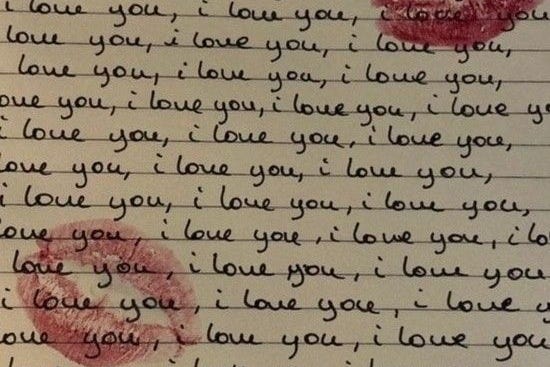 i love you, i love you, i love you
love you, i love you, i love you,
love you, i love you, i love you,
ove you, i love you, i love you, i love yo
i love you, i love you, i love you,
ove you, i love you, i love you,
i love you, i love you, i love you,
ove you, i love you, i love you, i lo
love you, i love you, i love you
i love you, i love you, i love y
ove you, i love you, i love you